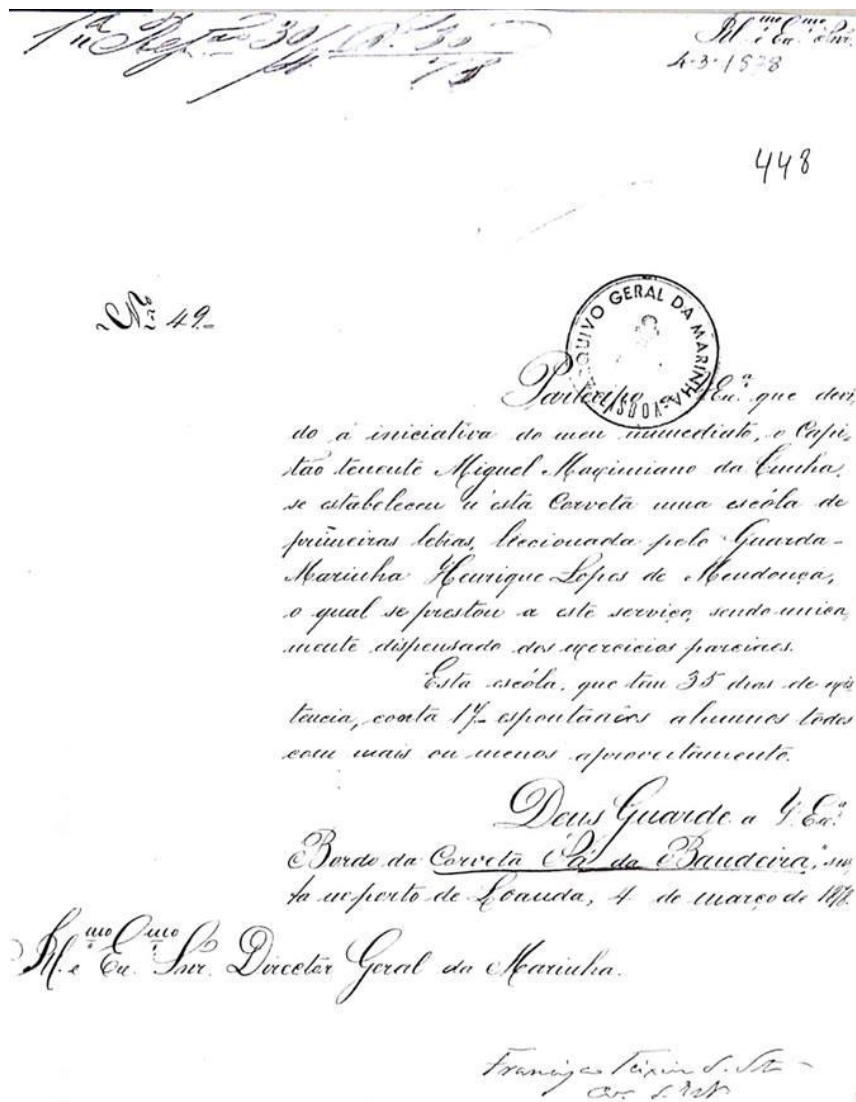 Ill.mo e Ex.mo Snr.
4-3-1878
448
N.º 49
ARQUIVO GERAL DA MARINHA
LISBOA
Participo a V. Ex.ª que devi-
do á iniciativa do meu immediato, o Capi-
tão tenente Miguel Maximiano da Cunha,
se estabeleceu n'esta Corveta uma escóla de
primeiras letras, leccionada pelo Guarda-
Marinha Henrique Lopes de Mendonça,
o qual se prestou a este serviço, sendo unica-
mente dispensado dos exercicios parciaes.
Esta escóla, que tem 35 dias de exis-
tencia, conta 17 espontaneos alumnos todos
com mais ou menos aproveitamento.
Deus Guarde a V. Ex.ª
Bordo da Corveta "Sá da Bandeira", sur-
ta no porto de Loanda, 4 de março de 1878.
Ill.mo e Ex.mo Snr. Director Geral da Marinha.